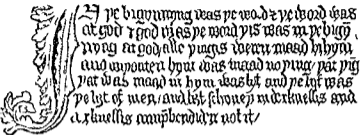 In þe bigynnyng was þe word & þe word was
at god & god was þe word þis was in þe bigyn
nyng at god alle þingis weren maad bi hym
and wiþouten hym was maad no þing þat þing
þat was maad in hym was lyf and þe lyf was
þe liȝt of men / and liȝt schyneþ in derknessis and
derknessis comprehendiden not it /